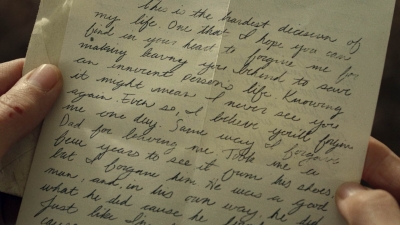 This is the hardest decision of
my life. One that I hope you can
find in your heart to forgive me for
making. Leaving you behind to save
an innocent person's life. Knowing
it might mean I never see you
again. Even so, I believe you'll forgive
me one day. Same way I forgave
Dad for leaving me. Took me a
few years to see it from his shoes,
but I forgave him. He was a good
man, and, in his own way, he did
what he did cause he
just like I'm